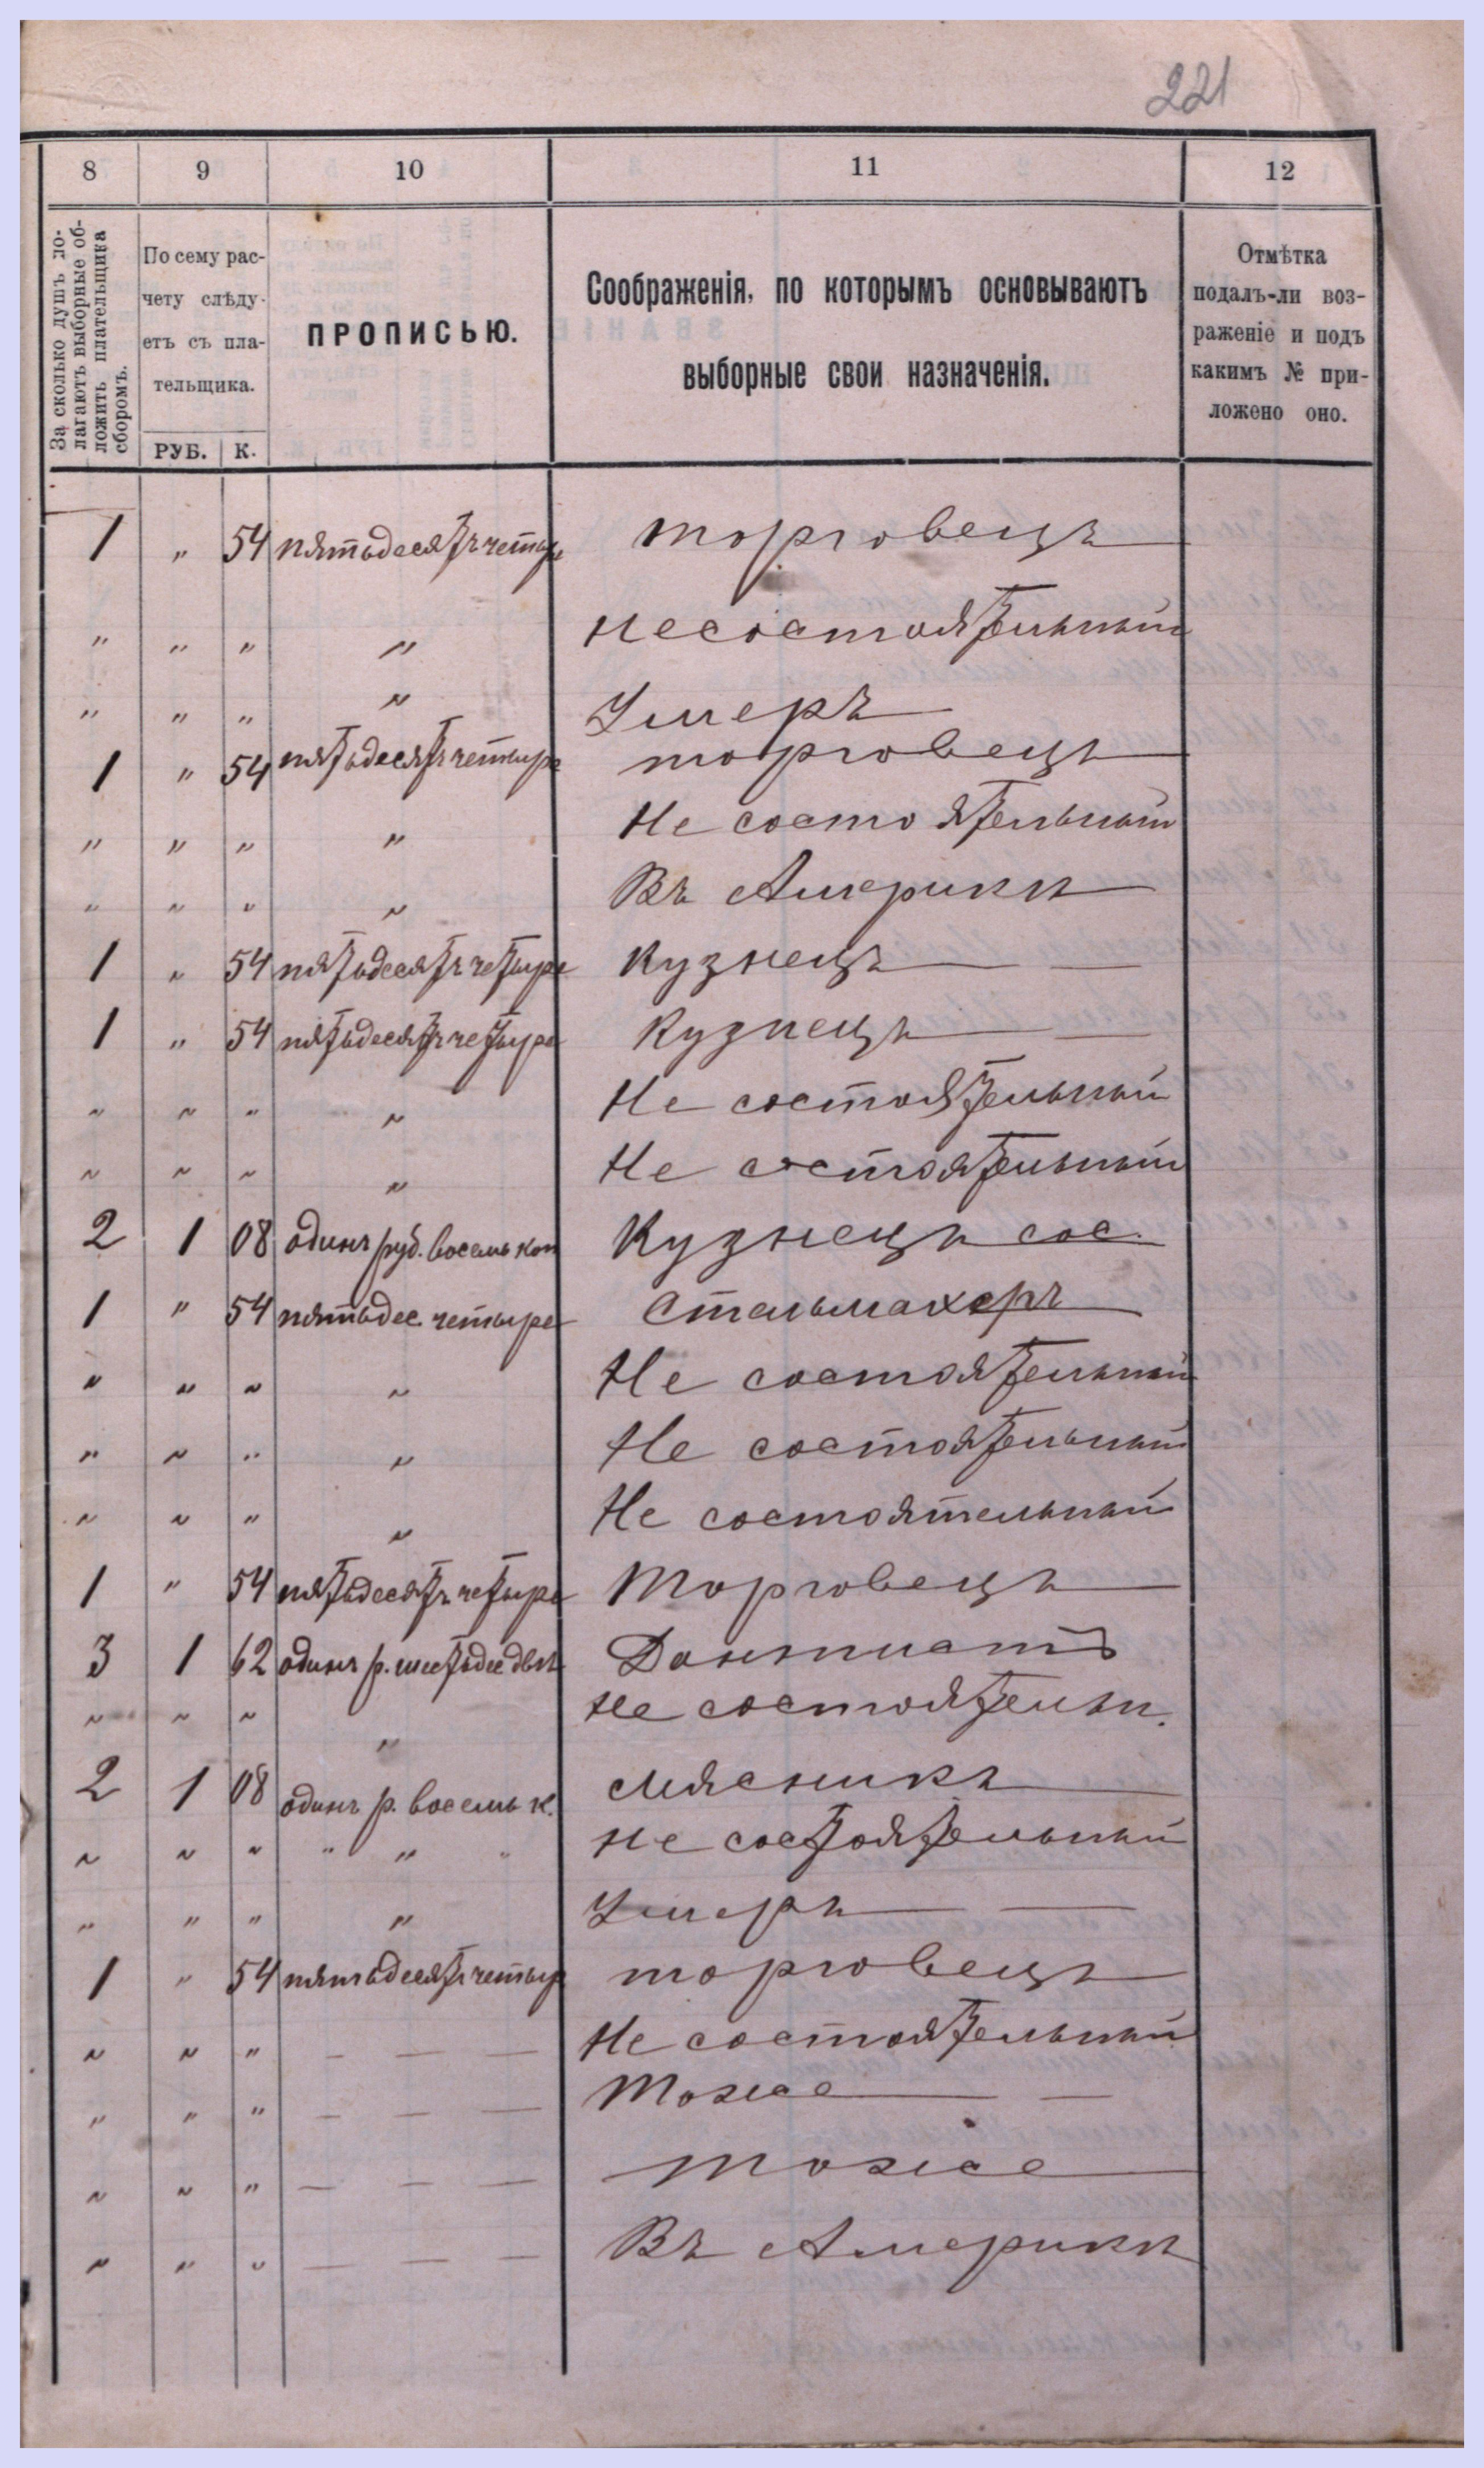 221
8 9 10 11 12
За сколько душъ по-
лагаютъ выборные об-
ложить плательщика
сборомъ.
По сему рас-
чету слѣду-
етъ съ пла-
тельщика.
РУБ. К.
ПРОПИСЬЮ.
Соображенія, по которымъ основываютъ
выборные свои назначенія.
Отмѣтка
подалъ-ли воз-
раженіе и подъ
какимъ № при-
ложено оно.
1 „ 54 пятьдесятъ четыре торговецъ
„ „ „ „ несостоятельный
„ „ „ „ Умеръ
1 „ 54 пятьдесятъ четыре торговецъ
„ „ „ „ Не состоятельный
„ „ „ „ Въ Америкѣ
1 „ 54 пятьдесятъ четыре Кузнецъ
1 „ 54 пятьдесятъ четыре Кузнецъ
„ „ „ „ Не состоятельный
„ „ „ „ Не состоятельный
2 1 08 одинъ руб. восемь коп Кузнецъ сос.
1 „ 54 пятьдес. четыре Стельмахеръ
„ „ „ „ Не состоятельный
„ „ „ „ Не состоятельный
„ „ „ „ Не состоятельный
1 „ 54 пятьдесятъ четыре Торговецъ
3 1 62 одинъ р. шестьдес двѣ
„ „ „ „ не состоятельн.
2 1 08 одинъ р. восемь к. Мясникъ
„ „ „ „ „ „ не состоятельный
„ „ „ „ Умеръ
1 „ 54 пятьдесятъ четыр торговецъ
„ „ „ — — — Не состоятельный
„ „ „ — — — Тоже
„ „ „ — — — тоже
„ „ „ — — — Въ Америкѣ